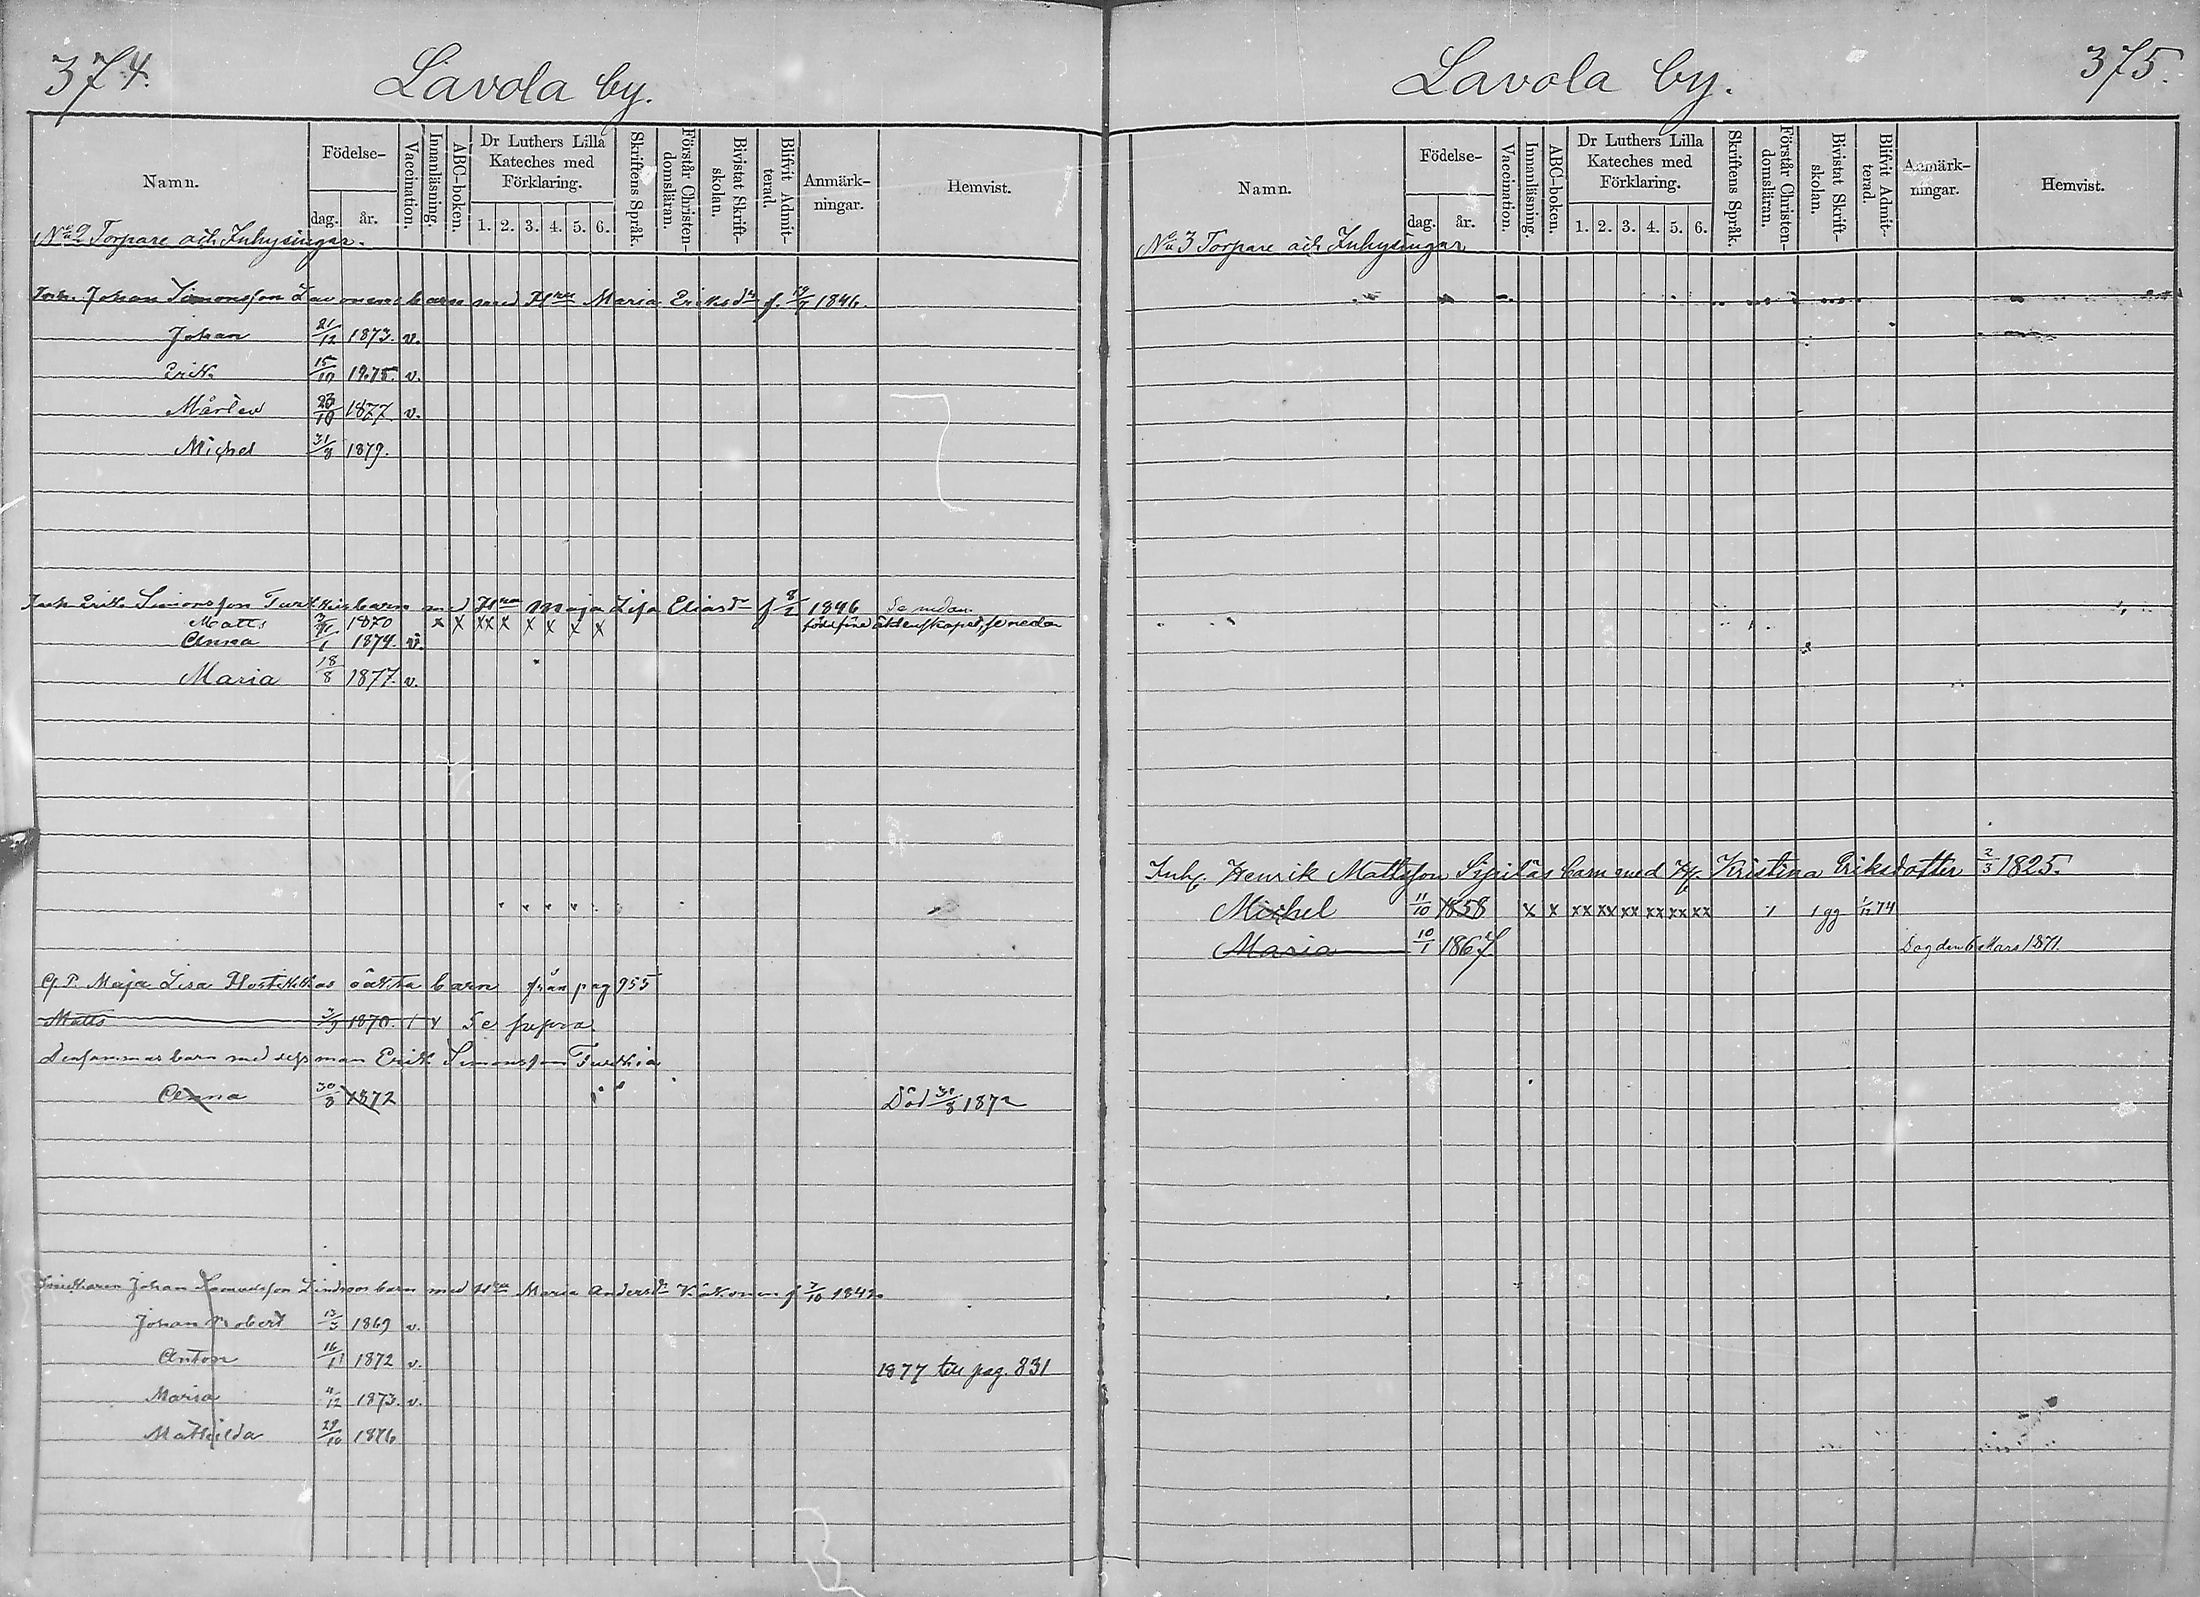 374.
Lavola by.
Namn.
Födelse-
dag.
år.
Vaccination.
Innanläsning.
ABC-boken.
Dr Luthers Lilla Kateches med Förklaring.
1. 2. 3. 4. 5. 6.
Skriftens Språk.
Förstår Christendomsläran.
Bivistat Skriftskolan.
Blifvit Admitterad.
Anmärkningar.
Hemvist.
Torpare och Inhysingar.
Johan Simonsson barn med Hru Maria Eriksdr f. 1846.
Johan 21/12 1873. v.
Erik 15/10 1875. v.
Mårten 1877 v.
Michel 31/8 1879.
Erik Simonsson barn med Hru Maja Lisa Eliasdr f 8/2 1846 Se nedan.
Matts 1870 x x xx x x x x x före äktenskapet, se nedan
Anna 1874. v.
Maria 18/8 1877. v.
Maja Lisa oäkta barn från pag 955
Matts 3/9 1870. 1 v Se supra
Densammas barn med dess man Erik Simonsson Turkia
Anna 30/8 1872 Död 31/8 1872
Johan Samuelsson Lindroos barn med Hru Maria Andersdr f 1842
Johan Robert 1869 v.
Anton 16/11 1872 v. 1877 till pag. 831
Maria 4/12 1873. v.
Mathilda 29/10 1876
375.
Lavola by.
Namn.
Födelse-
dag.
år.
Vaccination.
Innanläsning.
ABC-boken.
Dr Luthers Lilla Kateches med Förklaring.
1. 2. 3. 4. 5. 6.
Skriftens Språk.
Förstår Christendomsläran.
Bivistat Skriftskolan.
Blifvit Admitterad.
Anmärkningar.
Hemvist.
No 3 Torpare och Inhysingar
Inh. Henrik Mattsson Sipiläs barn med H. Kristina Eriksdotter 2/3 1825.
Michel 11/10 1858 x x xx xx xx xx xx xx 1 1 gg 1/12 74
Maria 10/1 1867 Dog den 6 Mars 1871.